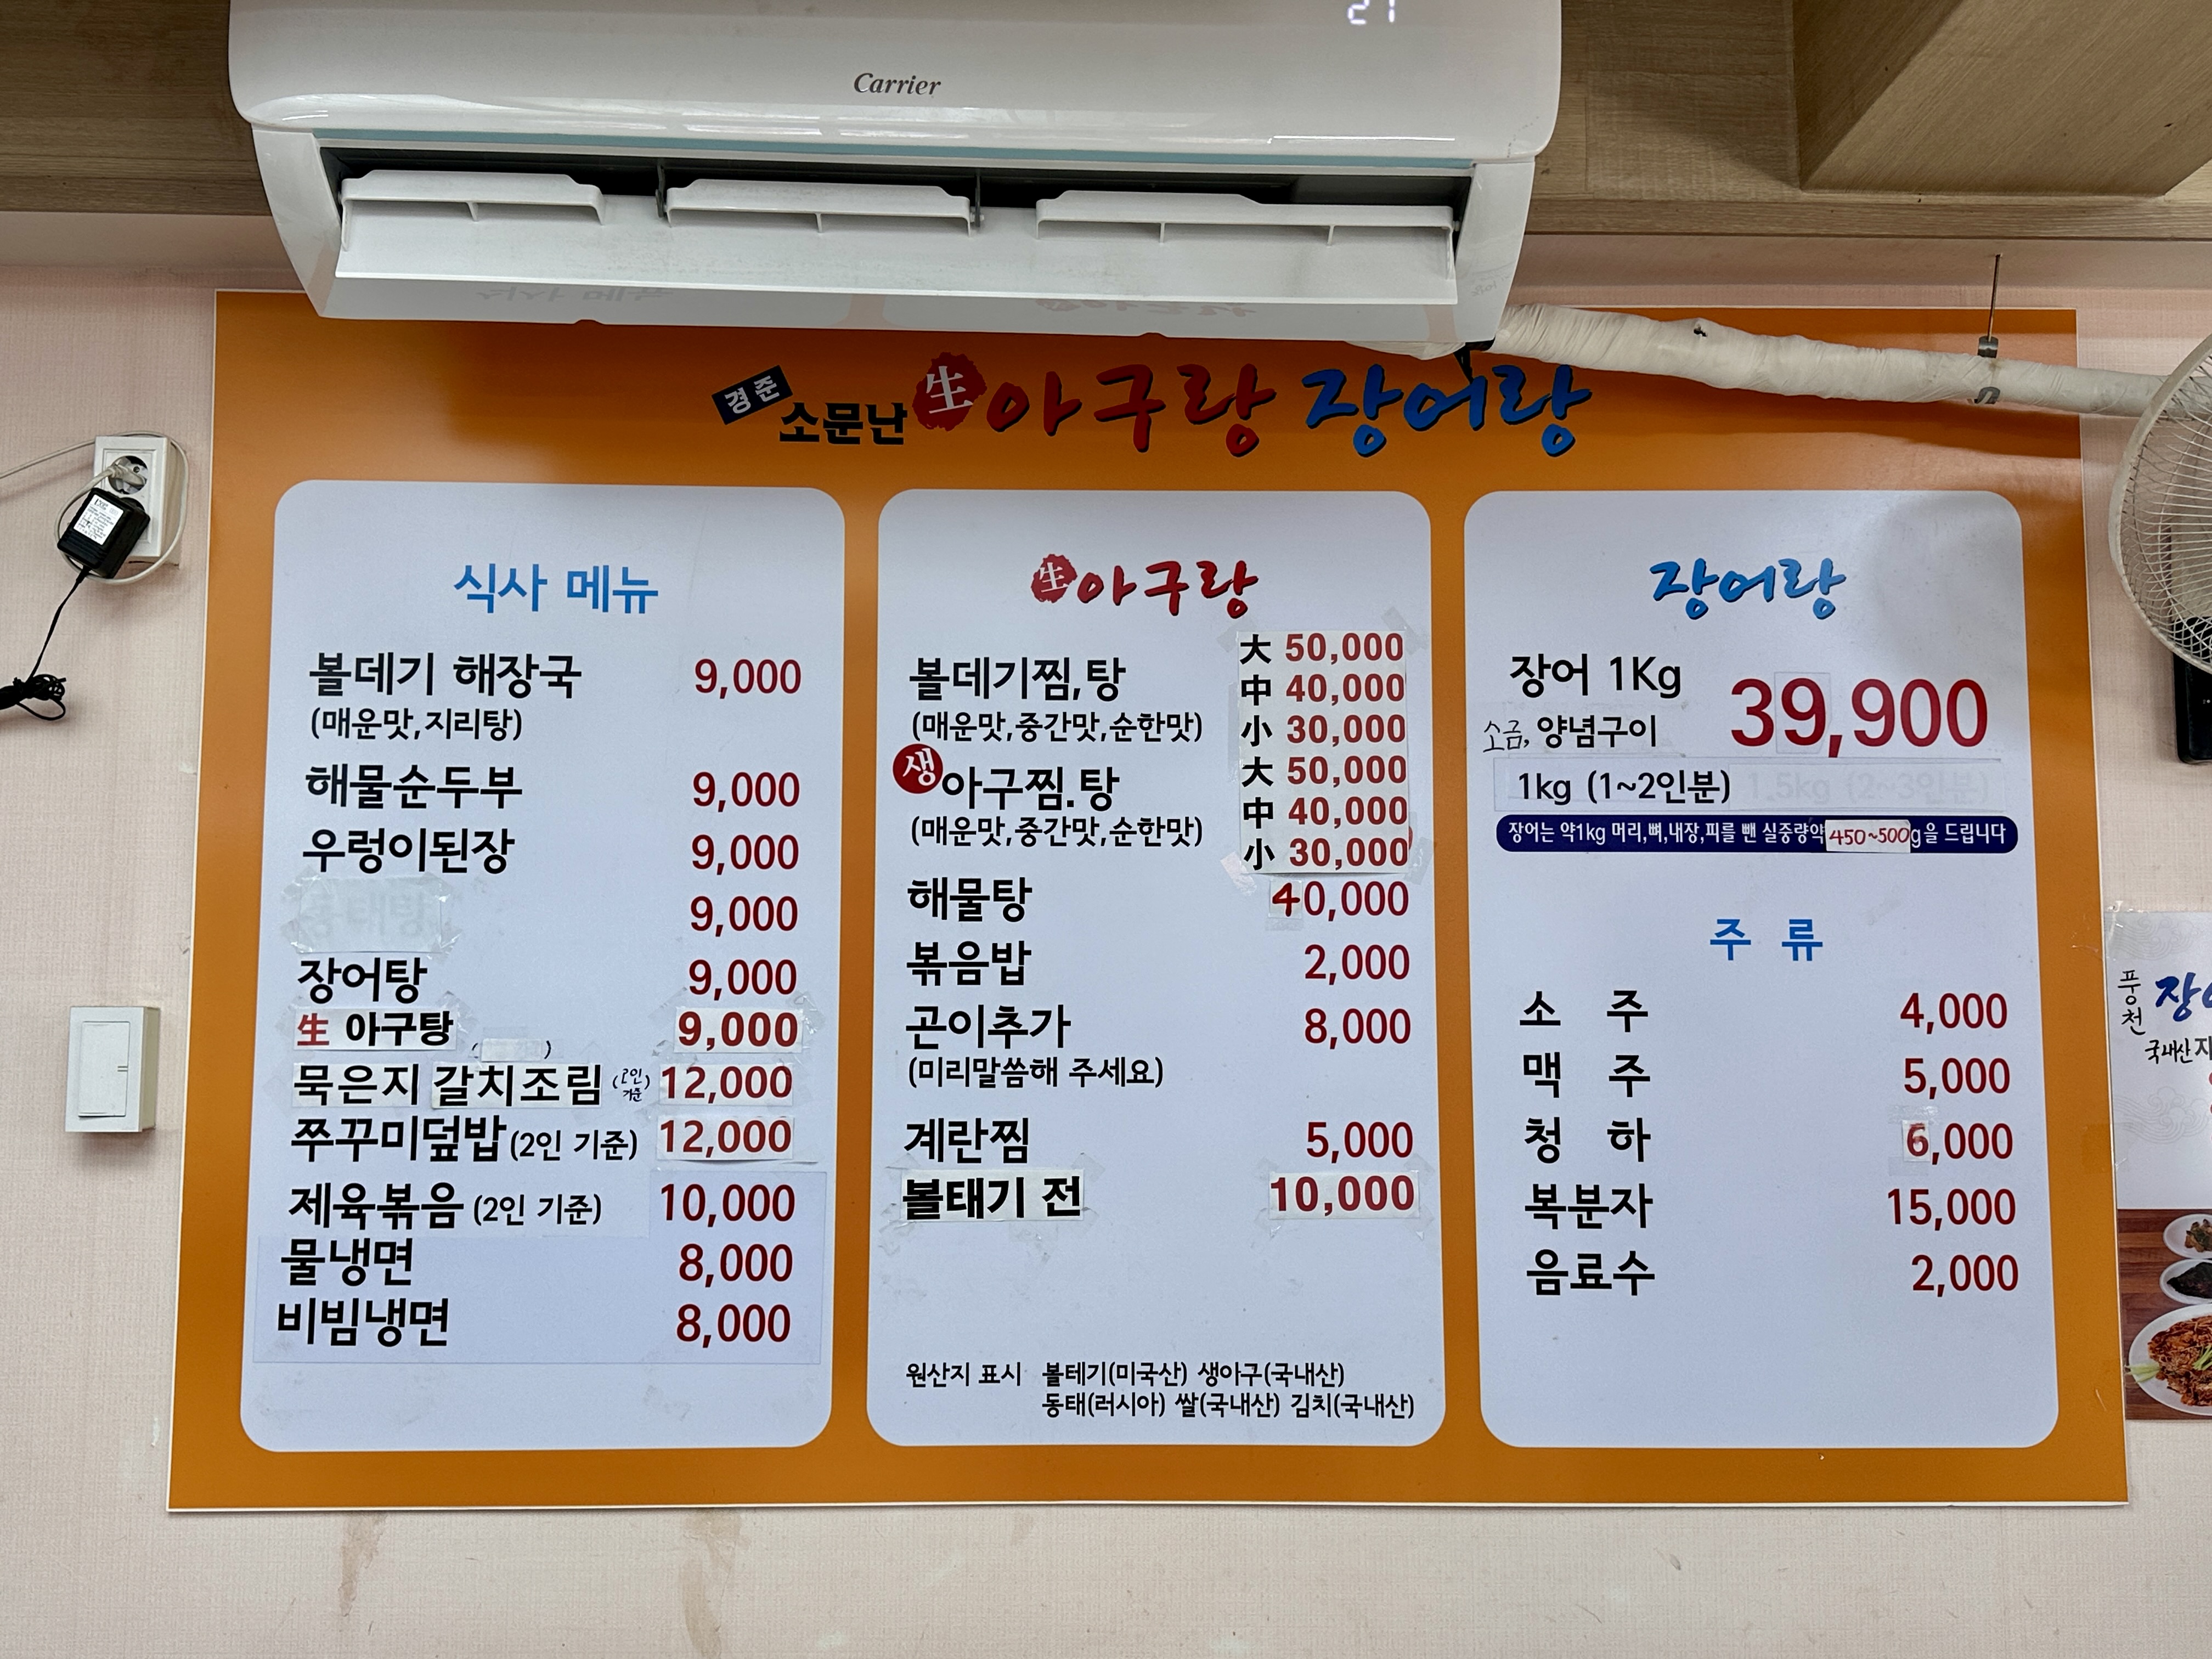 21
Carrier
경준 소문난 生 아구랑 장어랑
식사 메뉴
볼데기 해장국 9,000
(매운맛,지리탕)
해물순두부 9,000
우렁이된장 9,000
9,000
장어탕 9,000
生 아구탕 9,000
( )
묵은지 갈치조림 (2인 기준) 12,000
쭈꾸미덮밥 (2인 기준) 12,000
제육볶음 (2인 기준) 10,000
물냉면 8,000
비빔냉면 8,000
生 아구랑
볼데기찜,탕 大 50,000
中 40,000
(매운맛,중간맛,순한맛) 小 30,000
생 아구찜.탕 大 50,000
中 40,000
(매운맛,중간맛,순한맛) 小 30,000
해물탕 40,000
볶음밥 2,000
곤이추가 8,000
(미리말씀해 주세요)
계란찜 5,000
볼태기 전 10,000
원산지 표시 볼테기(미국산) 생아구(국내산)
동태(러시아) 쌀(국내산) 김치(국내산)
장어랑
장어 1Kg 39,900
소금, 양념구이
1kg (1~2인분) 1.5kg (2~3인분)
장어는 약1kg 머리,뼈,내장,피를 뺀 실중량약 450~500g을 드립니다
주 류
소 주 4,000
맥 주 5,000
청 하 6,000
복분자 15,000
음료수 2,000
풍천
국내산